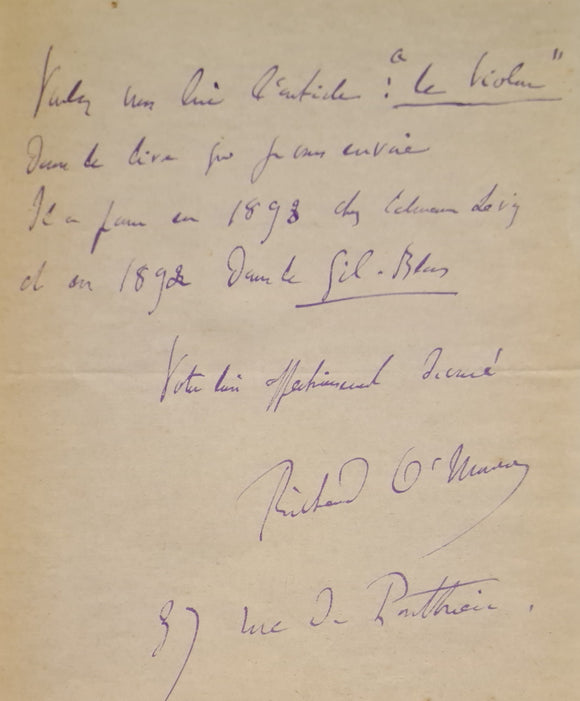 Voulez vous lire l'article : "le Violon"
dans le livre que je vous envoie
Il a paru en 1893 chez Calmann Levy
et en 1892 dans le Gil-Blas
Votre bien affectionné dévoué
Richard O'Monroy
37 rue de Ponthieu.